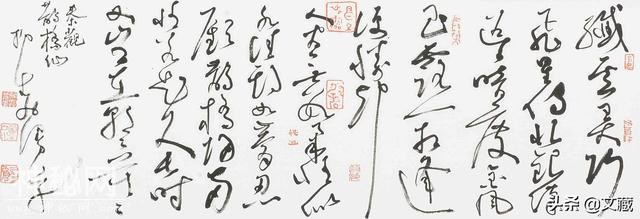 纖雲弄巧
飛星傳恨銀漢
迢迢暗度金風
玉露一相逢
便勝却
人間無數柔情似
水佳期如夢忍
顧鵲橋歸路兩
情若是久長時
又豈在朝朝暮暮
秦觀
鵲橋仙
头条 @文藏